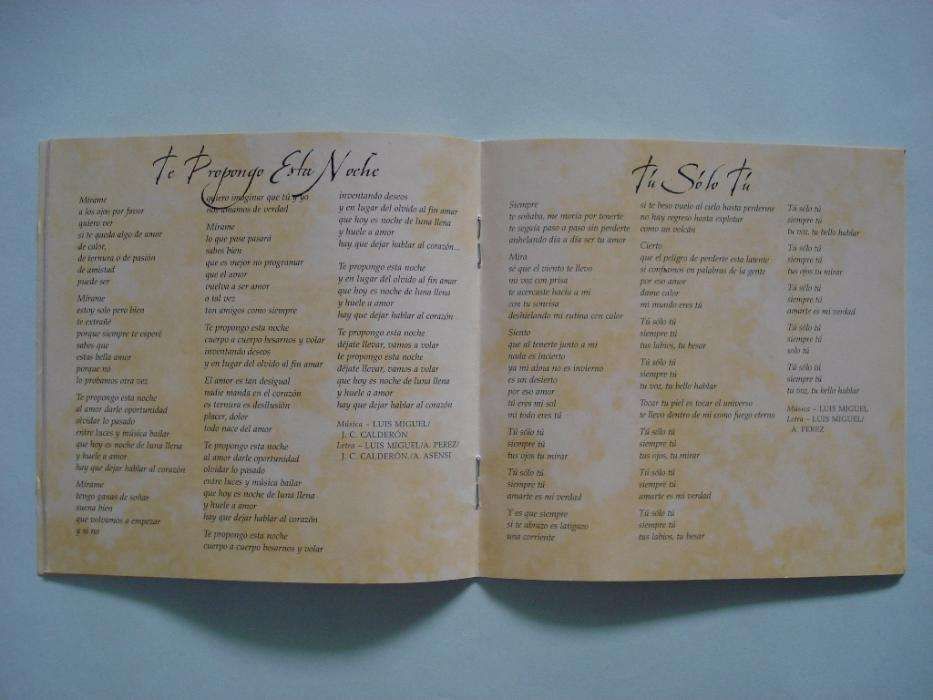 Te Propongo Esta Noche
Mírame
a los ojos por favor
quiero ver
si te queda algo de amor
de calor,
de ternura o de pasión
de amistad
puede ser
Mírame
estoy solo pero bien
te extrañé
porque siempre te esperé
sabes que
estas bella amor
porque no
lo probamos otra vez
Te propongo esta noche
al amor darle oportunidad
olvidar lo pasado
entre luces y música bailar
que hoy es noche de luna llena
y huele a amor
hay que dejar hablar al corazón
Mírame
tengo ganas de soñar
suena bien
que volvamos a empezar
y si no
quiero imaginar que tú y yo
nos amamos de verdad
Mírame
lo que pase pasará
sabes bien
que es mejor no programar
que el amor
vuelva a ser amor
o tal vez
tan amigos como siempre
Te propongo esta noche
cuerpo a cuerpo besarnos y volar
inventando deseos
y en lugar del olvido al fin amar
El amor es tan desigual
nadie manda en el corazón
es ternura es desilusión
placer, dolor
todo nace del amor
Te propongo esta noche
al amor darte oportunidad
olvidar lo pasado
entre luces y música bailar
que hoy es noche de luna llena
y huele a amor
hay que dejar hablar al corazón
Te propongo esta noche
cuerpo a cuerpo besarnos y volar
inventando deseos
y en lugar del olvido al fin amar
que hoy es noche de luna llena
y huele a amor
hay que dejar hablar al corazón...
Te propongo esta noche
y en lugar del olvido al fin amar
que hoy es noche de luna llena
y huele a amor
hay que dejar hablar al corazón...
Te propongo esta noche
déjate llevar, vamos a volar
te propongo esta noche
déjate llevar, vamos a volar
que hoy es noche de luna llena
y huele a amor
hay que dejar hablar al corazón
Música - LUIS MIGUEL/
J. C. CALDERÓN
Letra - LUIS MIGUEL/A. PEREZ/
J. C. CALDERÓN./A. ASENSI
Tú Sólo Tú
Siempre
te soñaba, me moría por tenerte
te seguía paso a paso sin perderte
anhelando día a día ser tu amor
Mira
sé que el viento te llevo
mi voz con prisa
te acercaste hacia a mi
con tu sonrisa
deshielando mi rutina con calor
Siento
que al tenerte junto a mi
nada es incierto
ya mi alma no es invierno
es un desierto
por eso amor
tú eres mi sol
mi todo eres tú
Tú sólo tú
siempre tú
tus ojos tu mirar
Tú sólo tú
siempre tú
amarte es mi verdad
Y es que siempre
si te abrazo es latigazo
una corriente
si te beso vuelo al cielo hasta perderme
no hay regreso hasta explotar
como un volcán
Cierto
que el peligro de perderte esta latente
si confiamos en palabras de la gente
por eso amor
dame calor
mi mundo eres tú
Tú sólo tú
siempre tú
tus labios, tu besar
Tú sólo tú
siempre tú
tu voz, tu bello hablar
Tocar tu piel es tocar el universo
te llevo dentro de mí como fuego eterno
Tú sólo tú
siempre tú
tus ojos, tu mirar
Tú sólo tú
siempre tú
amarte es mi verdad
Tú sólo tú
siempre tú
tus labios, tu besar
Tú sólo tú
siempre tú
tu voz, tu bello hablar
Tú sólo tú
siempre tú
tus ojos tu mirar
Tú sólo tú
siempre tú
amarte es mi verdad
Tú sólo tú
siempre tú
solo tú
Tú sólo tú
siempre tú
tu voz, tu bello hablar
Música - LUIS MIGUEL
Letra - LUIS MIGUEL/
A. PEREZ